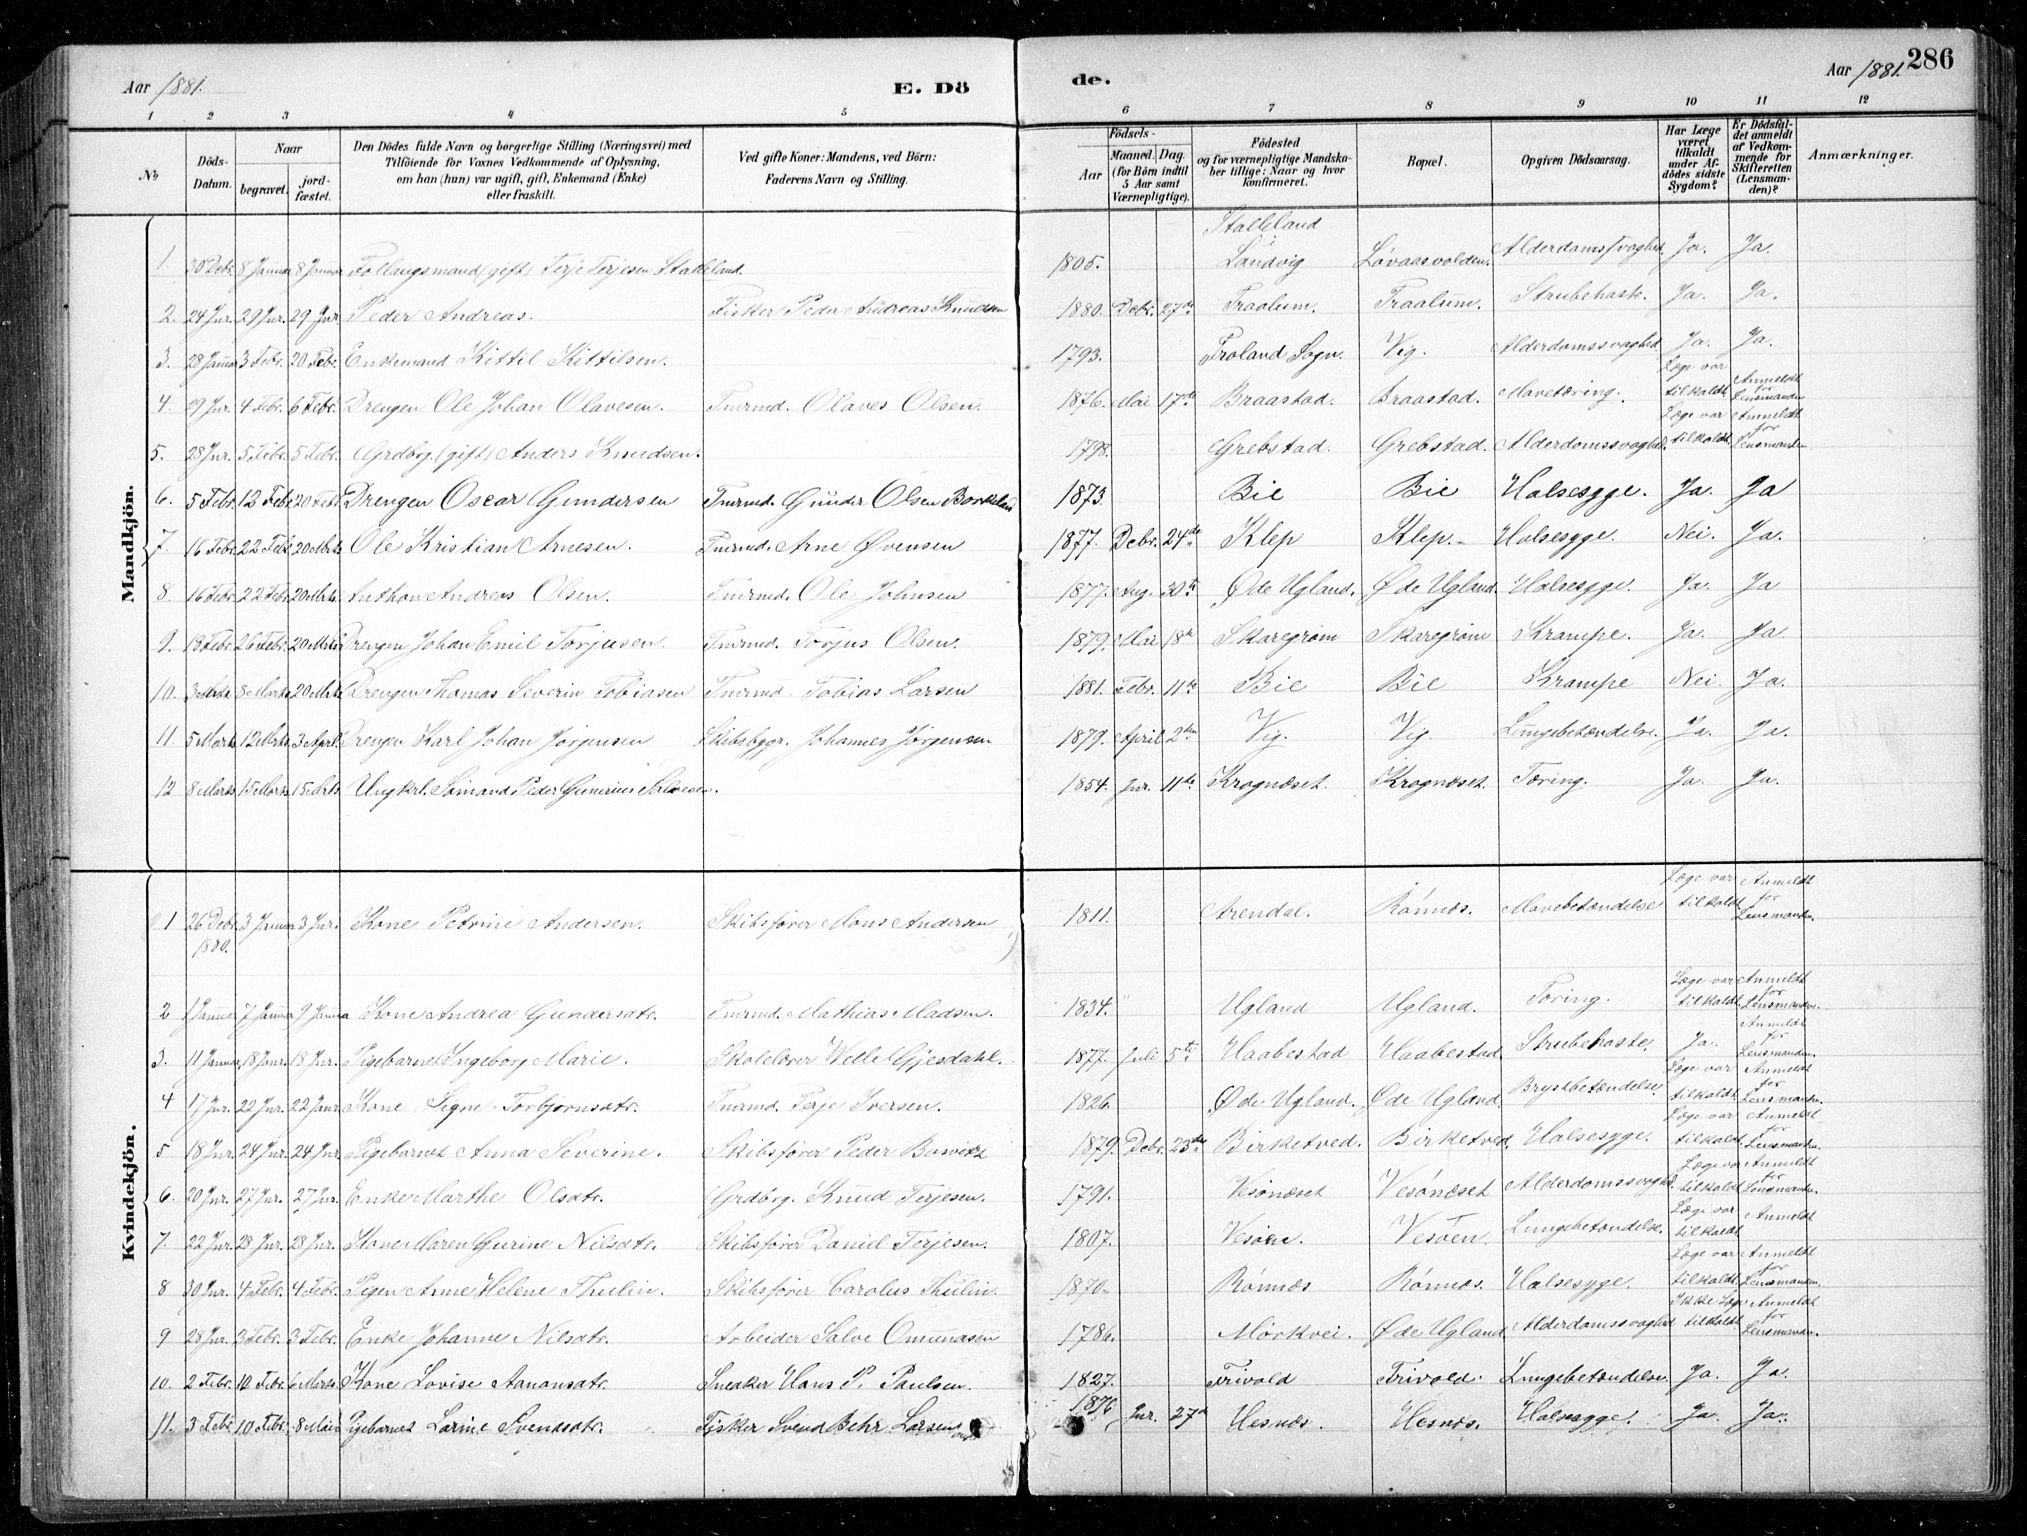 Aar 1881. E. Dö de. Aar 1881. 286
1 2 3 4 5 6 7 8 9 10 11 12
No
Döds-Datum.
Naar
begravet.
jord-fæstet.
Den Dödes fulde Navn og borgerlige Stilling (Næringsvei) med
Tilföiende for Voxnes Vedkommende af Oplysning,
om han (hun) var ugift, gift, Enkemand (Enke)
eller fraskilt.
Ved gifte Koner: Mandens, ved Börn:
Faderens Navn og Stilling.
Födsels-
Aar
Maaned. Dag.
(for Börn indtil
5 Aar samt
Værnepligtige).
Födested
og for værnepligtige Mandska-
ber tillige: Naar og hvor
konfirmeret.
Bopæl.
Opgiven Dödsaarsag.
Har Læge
været
tilkaldt
under Af-
dödes sidste
Sygdom?
Er Dödsfal-
det anmeldt
af Vedkom-
mende for
Skifteretten
(Lensman-
den)?
Anmærkninger.
Mandkjön.
1. 30 Debr. 8 Januar 8 Januar Follaugsmand (gift) Terje Terjesen Stalleland 1805. Stalleland Landvig Løvaasvolden. Alderdomssvaghed. Ja. Ja.
2. 24 Jnr. 29 Jnr. 29 Jnr. Peder Andreas. Fisker Peder Andreas Knudsen 1880. Debr. 27de Traalum. Traalum. Strubehoste. Ja. Ja.
3. 28 Januar 3 Febr. 20 Febr. Enkemand Kittil Kittilsen. 1793. Froland Sogn. Vig. Alderdomssvaghed Ja. Ja.
4. 29 Jnr. 4 Febr. 6 Febr. Drengen Ole Johan Olavesen. Tmrmd. Olaves Olsen. 1876. Mai 17de Braastad. Braastad. Mavetæring. Læge var tilkaldt Anmeldt for Lensmanden
5. 28 Jnr. 5 Febr. 5 Febr. Grdbrg. (gift) Anders Knudsen. 1798. Grebstad. Grebstad. Alderdomssvaghed. Læge var tilkaldt. Anmeldt for Lensmanden
6. 5 Febr. 12 Febr. 20 Febr. Drengen Oscar Gundersen Tmrmd. Gunder Olsen Borkeland 1873. Bie Bie Halsesyge. Ja. Ja
7. 16 Febr. 22 Febr. 20 Mrts. Ole Kristian Arnesen. Tmrmd. Arne Øvensen 1877. Debr. 24de Klep Klep. Halsesyge. Nei. Ja.
8. 16 Febr. 22 Febr. 20 Mrts. Anthon Andreas Olsen. Tmrmd. Ole Johnsen 1877. Aug. 30te Øde Ugland. Øde Ugland. Halsesyge. Ja. Ja
9. 18 Febr. 26 Febr. 20 Mrts. Drengen Johan Emil Torjusen. Tmrmd. Torjus Olsen. 1879. Mai 18de Skaregrøm Skaregrøm Krampe. Ja. Ja
10. 3 Mrts. 8 Marts 20 Mrts. Drengen Thomas Severin Tobiasen Tmrmd. Tobias Larsen 1881. Febr. 11te Bie Bie Krampe Nei. Ja.
11. 5 Marts 12 Mrts. 3 April Drengen Karl Johan Jørgensen Skibsbygr. Johannes Jørgensen 1879. April 2den Vig. Vig. Lungebetændelse. Ja. Ja.
12 8 Marts 15 Marts 15 Mrts. Ungkrl. Sømand Peder Gunerius Salvesen. 1854. Jnr. 11te Krognæset. Krognæset. Tæring. Ja. Ja.
Kvindekjön.
1 26 Debr. 1880. 3 Januar 3 Jnr. Kone Petrine Andersen. Skibsfører Mons Andersen 1811. Arendal. Rønnæs. Mavebetændelse Læge var tilkaldt. Anmeldt for Lensmanden.
2 1 Januar 7 Januar 9 Januar Kone Andrea Gundersdtr. Tmrmd. Mathias Madsen. 1834. Ugland Ugland. Tæring. Læge var tilkaldt. Anmeldt for Lensmanden.
3. 11 Januar 18 Jnr. 18 Jnr. Pigebarnet Ingeborg Marie. Skolelærer Welle Gjesdahl. 1877. Juli 5te Haabestad Haabestad Strubehoste. Ja. Anmeldt for Lensmanden.
4 17 Jnr. 22 Jnr. 22 Janr. Kone Signe Torbjørnsdtr. Tmrmd. Terje Iversen. 1826. Øde Ugland. Øde Ugland. Brystbetændelse. Læge var tilkaldt. Anmeldt for Lensmanden.
5 18 Jnr. 24 Jnr. 24 Jnr. Pigebarnet Anna Severine. Skibsfører Peder 1879. Debr. 23de Birketved. Birketved. Halsesyge. Læge var tilkaldt. Anmeldt for Lensmanden.
6. 20 Jnr. 27 Jnr. 27 Jnr. Enke Marthe Olsdtr. Grdbrg. Knud Terjesen. 1791. Vesønæset Vesønæset Alderdomssvaghd. Læge var tilkaldt Anmeldt for Lensmanden.
7. 22 Jnr. 28 Jnr. 28 Jnr. Kone Maren Gurine Nilsdtr. Skibsfører Daniel Terjesen. 1807. Vesøen. Vesøen. Lungebetændelse. Læge var tilkaldt. Anmeldt
8 30 Jnr. 4 Febr. 4 Febr. Pigen Anne Helene Thulin. Skibsfører Carolus Thulin. 1870. Rønnæs Rønnæs. Halsesyge. Læge var tilkaldt. Anmeldt for Lensmanden.
9 28 Jnr. 3 Febr. 3 Febr. Enke Johanne Nilsdtr. Arbeider Salve Omundsen 1786. Mørkvei. Øde Ugland Alderdomssvaghed Ikke Læge tilkaldt. Anmeldt for Lensmanden.
10. 2 Febr. 10 Febr. 6 Marts Kone Lovise Aanonsdtr. Snedker Hans P. Paulsen. 1827. Trivold Trivold. Lungebetændelse. Ja. Ja.
11. 3 Febr. 10 Febr. 8 Mai Pigebarnet Larine Svendsdtr. Fisker Svend Behr Larsen 1876 Jnr. 27de Hesnæs. Hesnæs. Halsesyge. Ja. Ja.